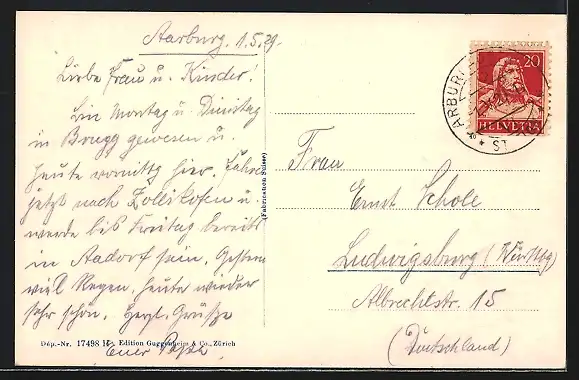 Aarburg, 1.5.29.
Liebe Frau u. Kinder!
Bin Montag u. Dienstag
in Brugg gewesen u.
heute vormittg hier. Fahre
jetzt nach Zollikofen u.
werde bis Freitag bereits
in Aadorf sein. Gestern
viel Regen, heute wieder
sehr schön. Herzl. Grüße
Euer Papa.
Dép.-Nr. 17498 Edition Guggenheim & Co., Zürich
(Fabrication Suisse)
20
HELVETIA
Frau
Ernst Schole
Ludwigsburg (Württbg)
Albrechtstr. 15
(Deutschland)